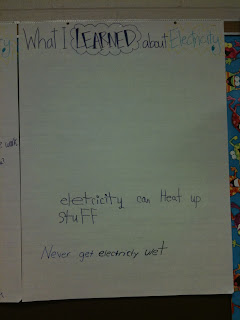 What I LEARNED about Electricity
eletricity can Heat up
stuff
Never get electricity wet